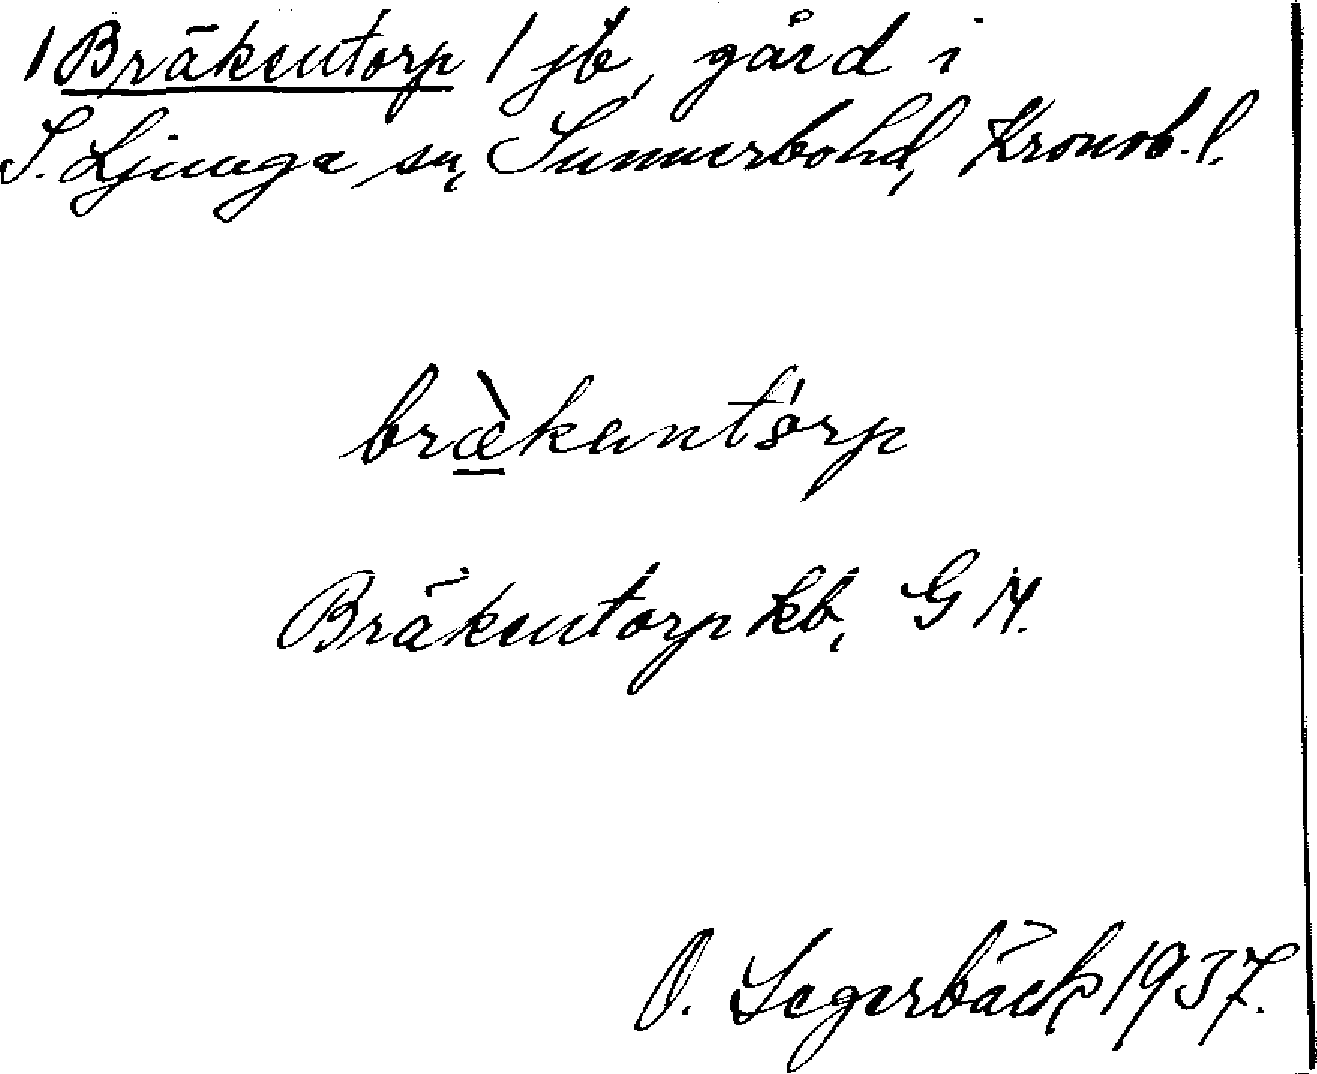 /Bräkentorp/ jb, gård i
S. Ljunga sn, Sunnerbohd, Kronob. l.
bræ̀kentórp
Bräkentorp kb, GM.
O. Segerbäck 1937.